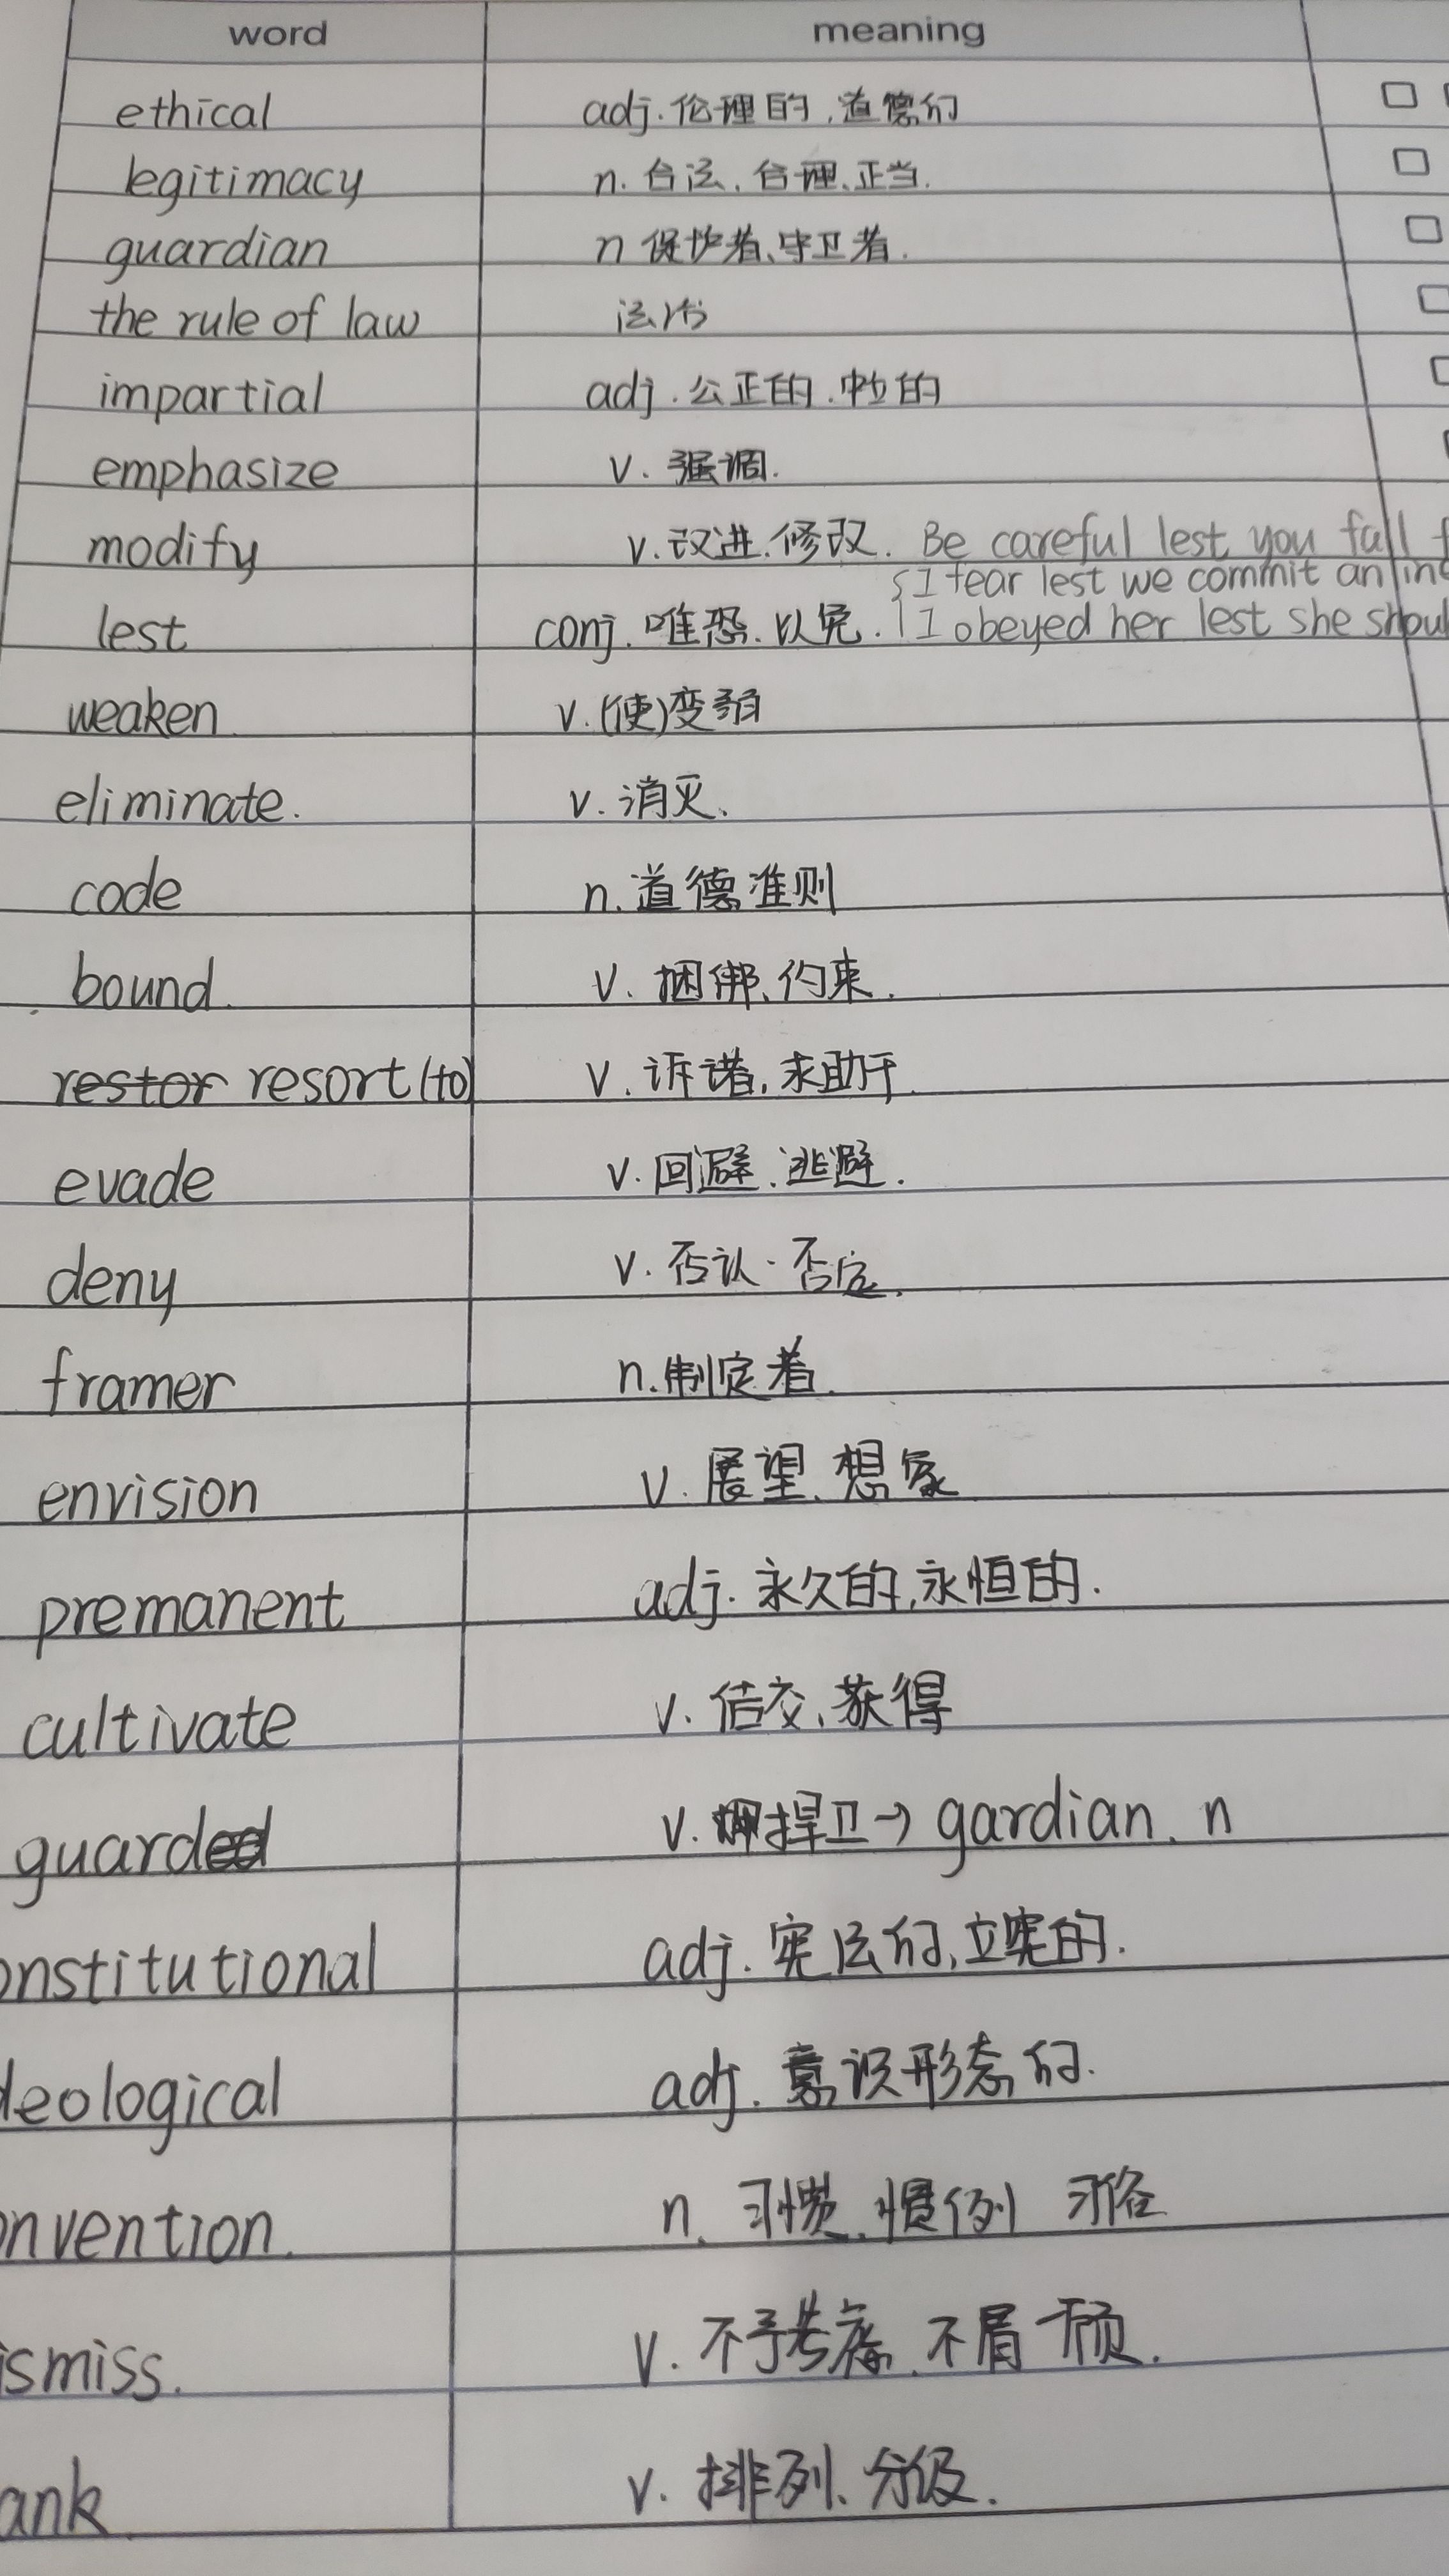 word meaning
ethical adj. 伦理的, 道德的
legitimacy n. 合法、合理、正当.
guardian n 保护者、守卫者.
the rule of law 法治
impartial adj. 公正的. 中立的
emphasize v. 强调.
modify v. 改进. 修改. Be careful lest you fall
I fear lest we commit an
lest conj. 唯恐. 以免. I obeyed her lest she
weaken v. (使)变弱
eliminate. v. 消灭、
code n. 道德准则
bound. v. 捆绑、约束.
restor resort (to) v. 诉诸, 求助于.
evade v. 回避. 逃避.
deny v. 否认. 否定.
framer n. 制定者.
envision v. 展望、想象
premanent adj. 永久的, 永恒的.
cultivate v. 结交, 获得
guarded v. 捍卫→ gardian. n
onstitutional adj. 宪法的, 立宪的.
deological adj. 意识形态的.
onvention. n. 习惯. 惯例 习俗
ismiss. v. 不予考虑. 不屑一顾.
ank v. 排列、分级.